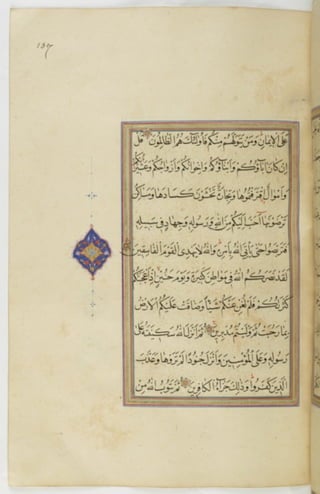 137
على الايمان ومن يتولهم منكم فاولئك هم الظالمون قل
ان كان اباؤكم وابناؤكم واخوانكم وازواجكم وعشيرتكم
واموال اقترفتموها وتجارة تخشون كسادها ومساكن
ترضونها احب اليكم من الله ورسوله وجهاد في سبيله
فتربصوا حتى يأتي الله بأمره والله لا يهدي القوم الفاسقين
لقد نصركم الله في مواطن كثيرة ويوم حنين اذ اعجبتكم
كثرتكم فلم تغن عنكم شيئا وضاقت عليكم الارض
بما رحبت ثم وليتم مدبرين ثم انزل الله سكينته على
رسوله وعلى المؤمنين وانزل جنودا لم تروها وعذب
الذين كفروا وذلك جزاء الكافرين ثم يتوب الله من